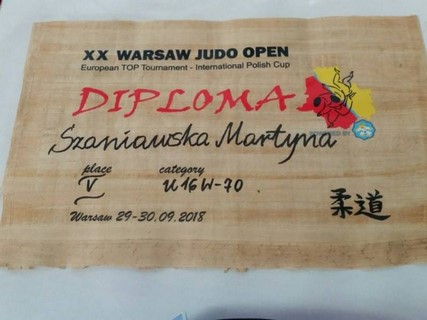 XX WARSAW JUDO OPEN
European TOP Tournament - International Polish Cup
DIPLOMA
Szaniawska Martyna
place category
V U16W-70.
Warsaw 29-30.09.2018
柔道